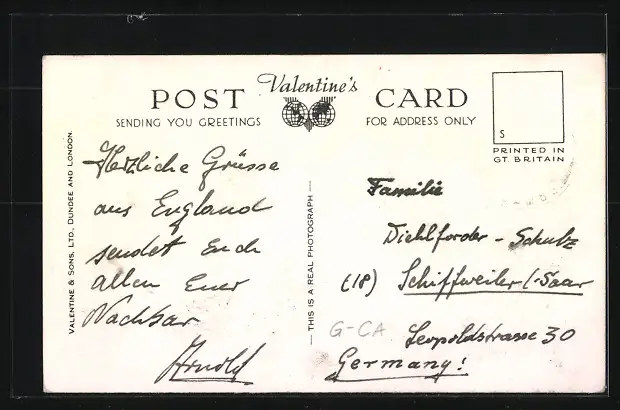 Valentine's
POST CARD
SENDING YOU GREETINGS
FOR ADDRESS ONLY
S
PRINTED IN
GT. BRITAIN
VALENTINE & SONS, LTD., DUNDEE AND LONDON.
Herzliche Grüsse
aus England
sendet Euch
allen Euer
Nachbar
Arnold
— THIS IS A REAL PHOTOGRAPH —
Familie
Diehlforder - Schulz
(18) Schiffweiler/-Saar
Leopoldstrasse 30
G-CA
Germany!